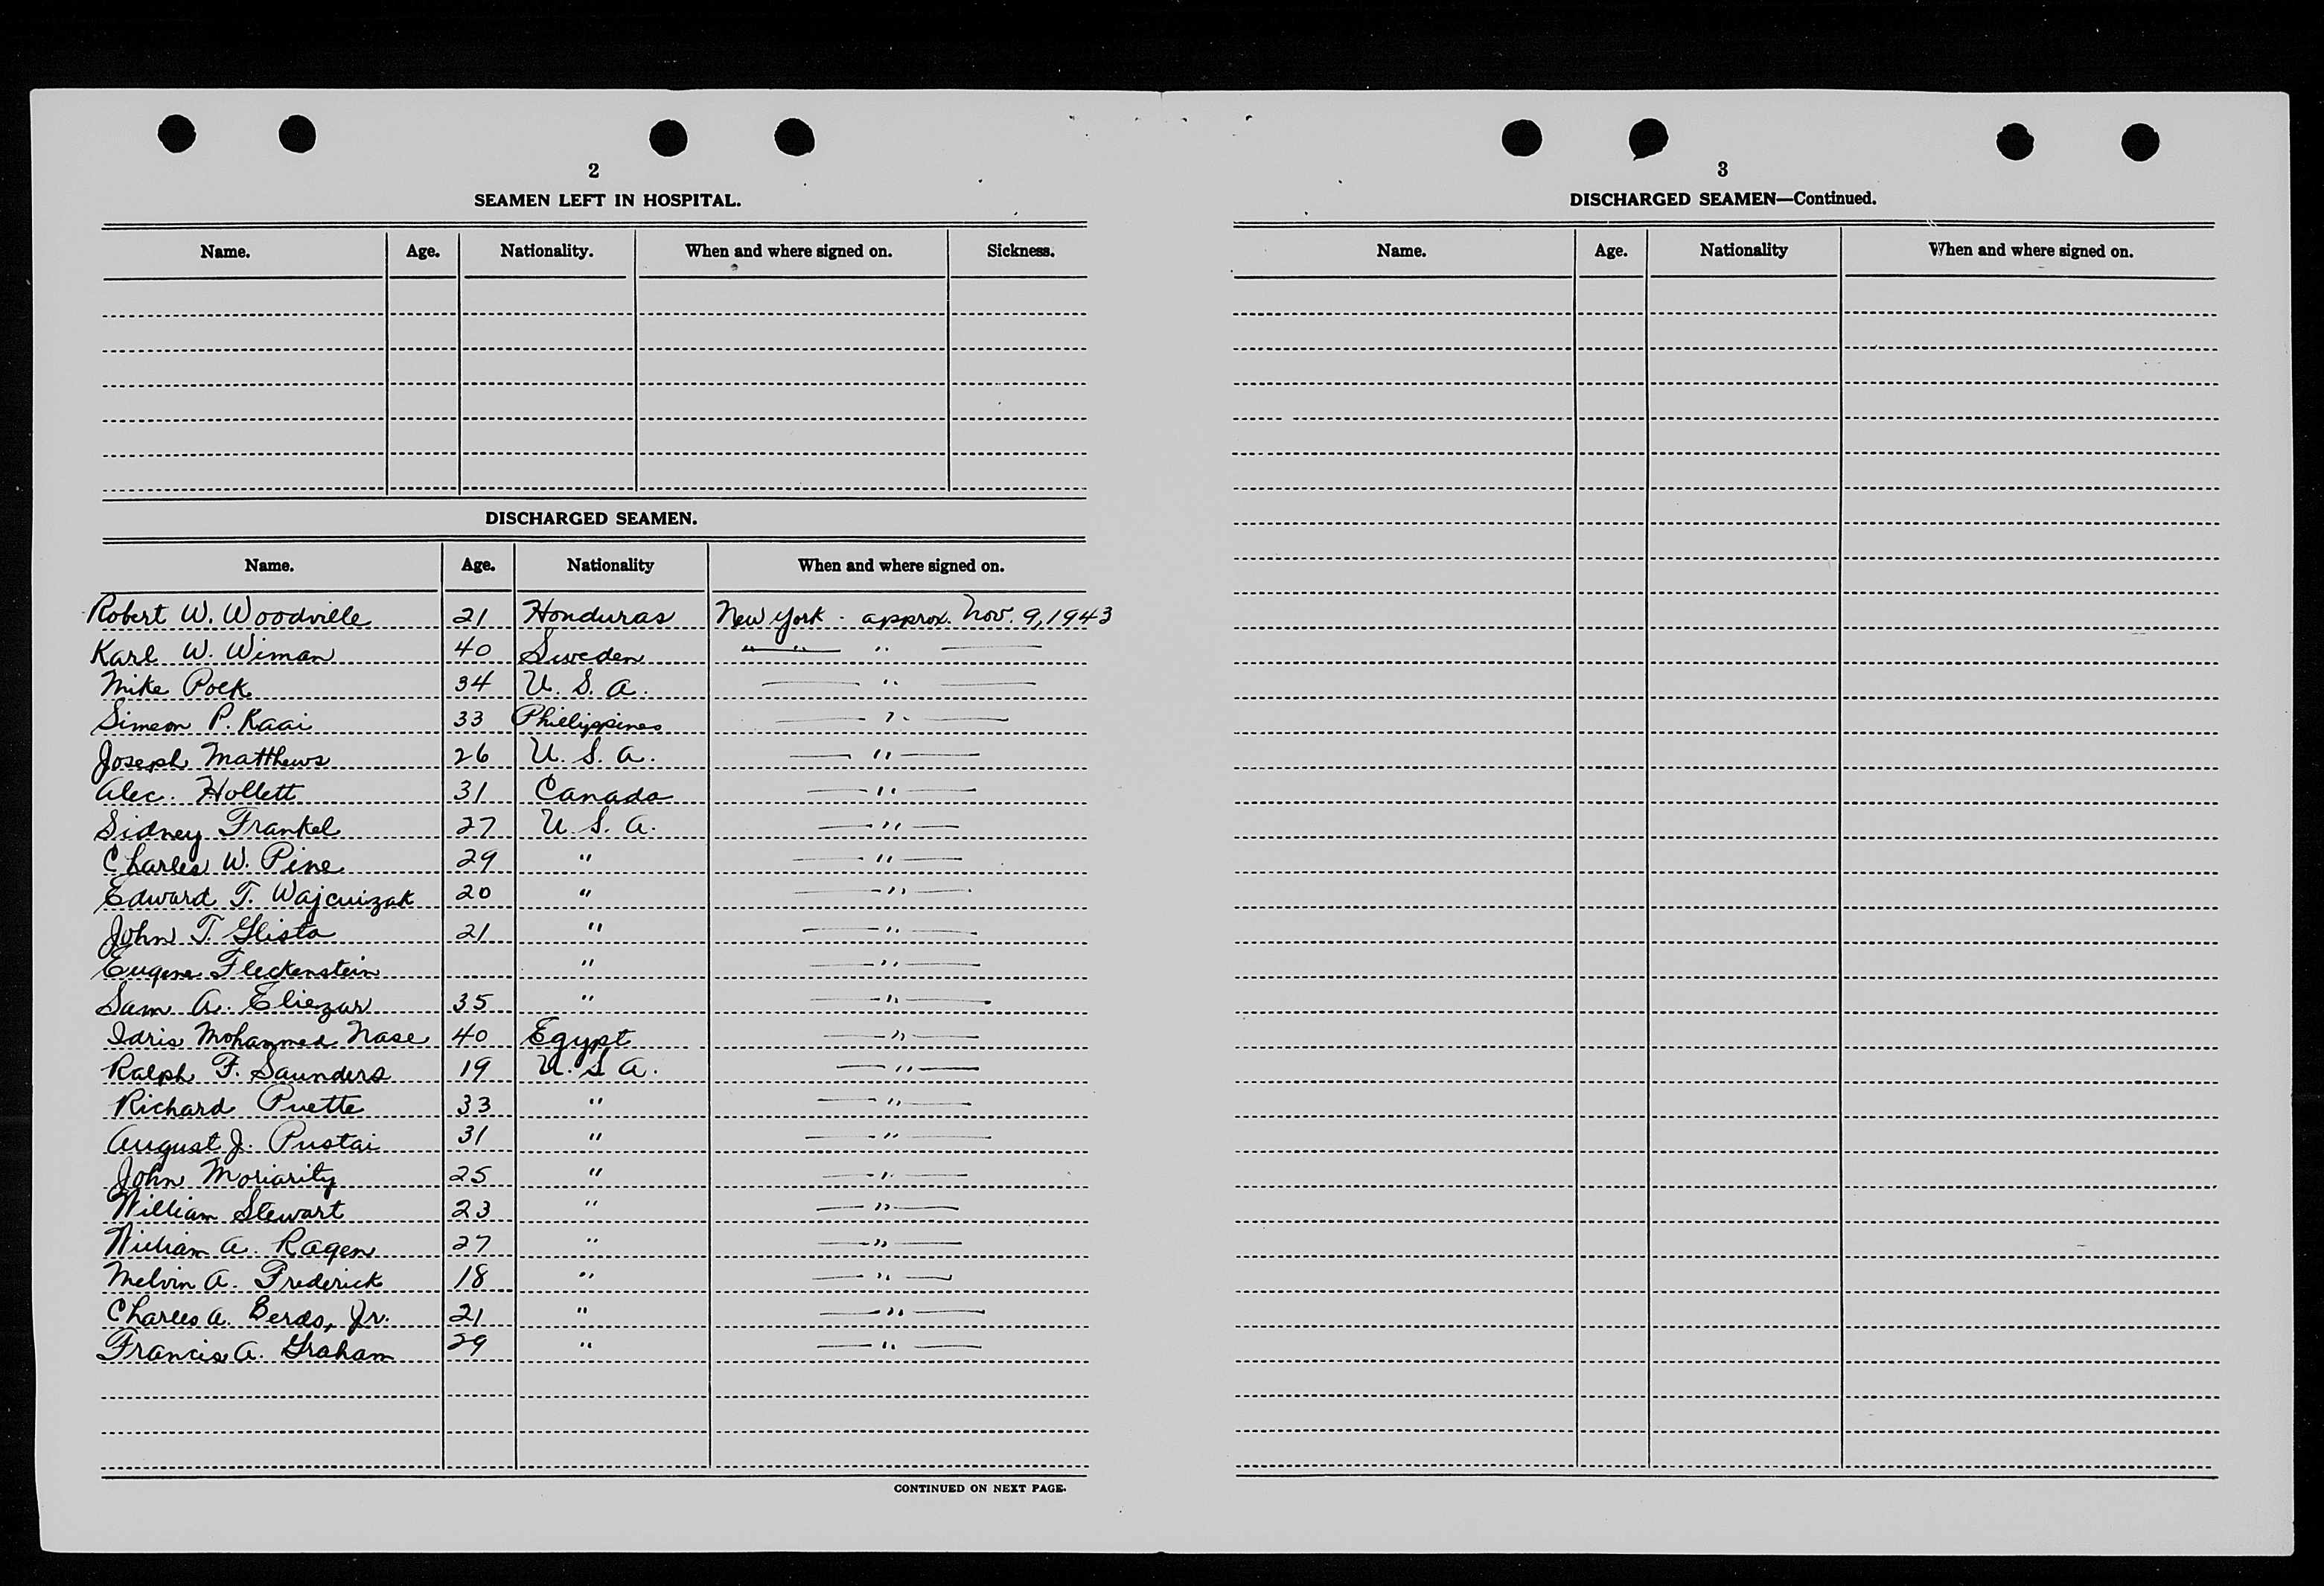 2
SEAMEN LEFT IN HOSPITAL.
Name. Age. Nationality. When and where signed on. Sickness.
DISCHARGED SEAMEN.
Name. Age. Nationality When and where signed on.
Robert W. Woodville 21 Honduras New York - approx. Nov. 9, 1943
Karl W. Wiman 40 Sweden " " "
Mike Polk 34 U. S. A. "
Simeon P. Kaai 33 Phillippines "
Joseph Matthews 26 U. S. A. "
Alec. Hollett 31 Canada "
Sidney Frankel 27 U. S. A. "
Charles W. Pine 29 " "
Edward T. Wajcuizak 20 " "
John T. Glista 21 " "
Eugene Fleckenstein " "
Sam A. Eliezar 35 " "
Idris Mohammed Nase 40 Egypt "
Ralph F. Saunders 19 U. S. A. "
Richard Puette 33 " "
August J. Pustai 31 " "
John Moriarity 25 " "
William Stewart 23 " "
William A. Ragen 27 " "
Melvin A. Frederick 18 " "
Charles A. Berds, Jr. 21 " "
Francis A. Graham 29 " "
CONTINUED ON NEXT PAGE.
3
DISCHARGED SEAMEN—Continued.
Name. Age. Nationality When and where signed on.